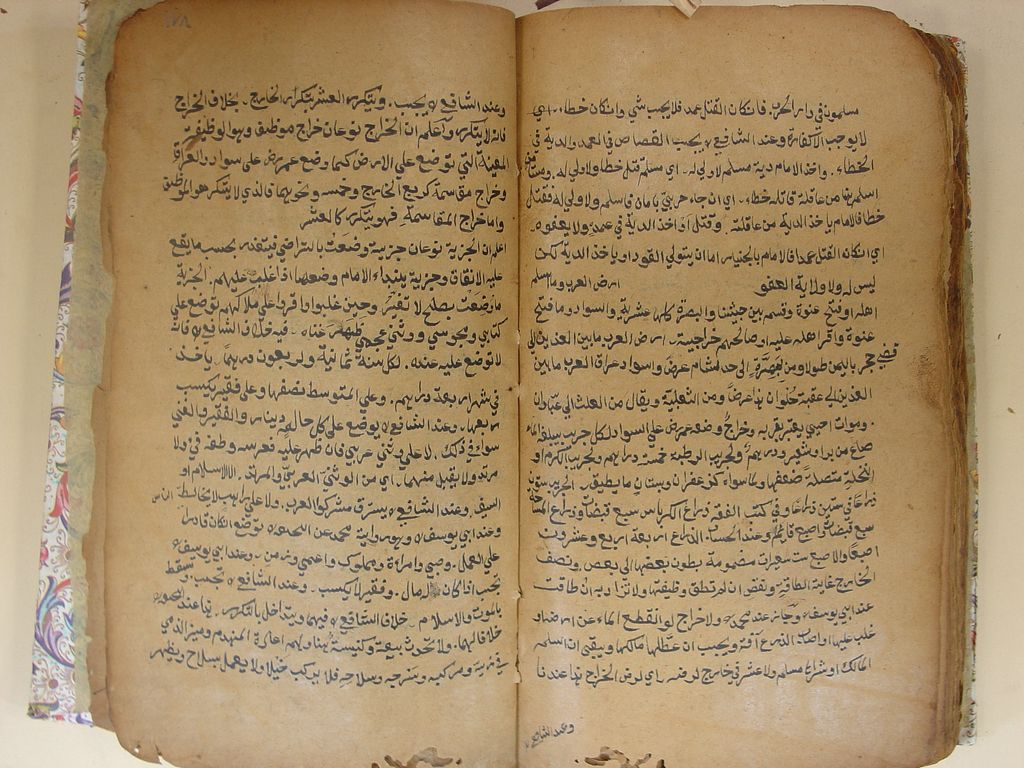 مسلمون في دار الحرب فان كان القتل عمدا فلا يجب شي وان كان خطاء اي
لا يوجب الا الكفارة وعند الشافعي يجب القصاص في العمد والدية في
الخطاء واخذ الامام دية مسلم لا ولي له اي مسلم قتل خطا ولا ولي له ومستأمن
اسلم هنا من عاقلة قاتله خطاء اي ان جاء حربي بامان فاسلم ولا ولي له فقتل
خطا فالامام ياخذ الدية من عاقلته وقتل او اخذ الدية في عمد ولا يعفوه
اي ان كان القتل عمدا فالامام بالخيار اما ان يتولي القود او ياخذ الدية لكن
ليس له ولاية العفو ارض العرب وما اسلم
اهله او فتح عنوة وقسم بين جيشنا والبصرة كلها عشرية والسواد وما فتح
عنوة واقر اهله عليه او صالحهم خراجية ارض العرب ما بين العذيب الي
اقصي حجر باليمن طولا ومن الي حد مشام عرضا وسواد عراق العرب ما بين
العذيب الي عقبة حلوان عرضا ومن الثعلبية ويقال من العلث الي عبادان
وموات احيي يعتبر بقربه وخراج وضعه عمر رض علي السواد لكل جريب يبلغه الماء
صاع من بر او شعير ودرهم ولجريب الرطبة خمسة دراهم ولجريب الكرم او
النخلة متصلة ضعفها ولما سواه كزعفران وبستان ما يطيق الجريب ستون
ذراعا في ستين ذراعا وفي كتب الفقه ذراع الكرباس سبع قبضات وذراع المساحة
سبع قبضات واصبع قائمة وعند الحساب الذراع اربعة اربع وعشرون
اصبعا والاصبع ست شعيرات مضمومة بطون بعضها الي بعض ونصف
الخارج غاية الطاقة ونقص ان لم تطق وظيفتها ولا تزاد به ان طاقت
عند ابي يوسف وجاز عند محمد ولا خراج لو انقطع الماء عن ارضه او
غلب عليها او اصاب الزرع آفة ويجب ان عطلها مالكها ويبقي ان اسلم
المالك او شراها مسلم ولا عشر في خارج ارضه اي ارض الخراج هذا عندنا
وعند الشافعي
وعند الشافعي يجب ويتكرر العشر بتكرار الخارج بخلاف الخراج
فانه لا يتكرر واعلم ان الخراج نوعان خراج موظف وهو الوظيفة
المعينة التي توضع علي الارض كما وضع عمر رض علي سواد العراق
وخراج مقاسمة كربع الخارج وخمسه ونحوهما فالذي لا يتكرر هو الموظف
واما خراج المقاسمة فهو يتكرر كالعشر
اعلم ان الجزية نوعان جزية وضعت بالتراضي فيتقدر بحسب ما يقع
عليه الاتفاق وجزية يبتداء الامام وضعها اذا غلب عليهم الجزية
ما وضعت بصلح لا تغير وحين غلبوا واقروا علي املاكهم توضع علي
كتابي ومجوسي ووثني عجمي ظهر غناه فيه خلاف الشافعي فانه
لا توضع عليه عنده لكل سنة ثمانية واربعون درهما ياخذ
في شهر اربعة دراهم وعلي المتوسط نصفها وعلي فقير يكسب
ربعها وعند الشافعي يوضع علي كل حالم دينار والفقير والغني
سواء في ذلك لا علي وثني عربي فان ظهر عليه فعرسه وطفله فيء ولا
مرتد ولا يقبل منهما اي من الوثني العربي والمرتد الا الاسلام او
السيف وعند الشافعي يسترق مشركوا العرب ولا علي راهب لا يخالط الناس
وعند ابي يوسف وهو رواية محمد عن ابي حنيفة توضع ان كان قادرا
علي العمل وصبي وامراة ومملوك واعمي وزمن وعند ابي يوسف
يجب اذا كان له مال وفقير لا يكسب وعند الشافعي تجب وتسقط
بالموت والاسلام خلاف الشافعي فيهما ويتداخل بالتكرر هذا عند ابي حنيفة
خلافا لهما ولا تحدث بيعة وكنيسة هنا ولهم اعادة المنهدم وميز الذمي
في زيه ومركبه وسرجه وسلاحه فلا يركب خيلا ولا يعمل بسلاح ويظهر